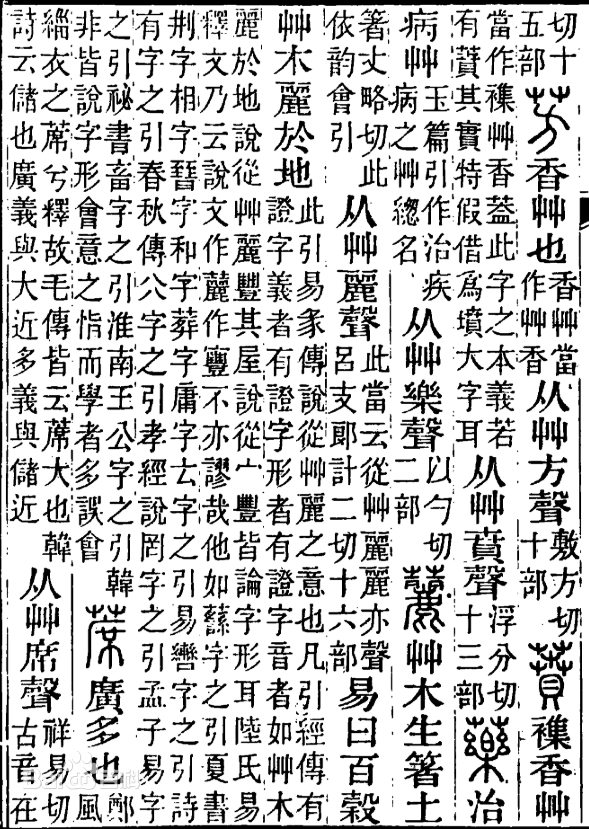 切十五部芳香艸也香艸當作艸香从艸方聲敷方切十部蕡襍香艸
當作襍艸香葢此字之本義若有蕡其實特假借爲墳大字耳从艸賁聲浮分切十三部藥治
病艸玉篇引作治疾病之艸緫名从艸樂聲以勺切二部䕻艸木生箸土
箸丈略切此依韵會引从艸麗聲此當云從艸麗麗亦聲呂支郎計二切十六部易曰百穀
艸木麗於地此引易彖傳說從艸麗之意也凡引經傳有證字義者有證字形者有證字音者如艸木
麗於地說從艸麗豐其屋說從宀豐皆論字形耳陸氏易釋文乃云說文作䕻作寷不亦謬哉他如蘨字之引夏書
荆字相字晉字和字葬字庸字𠫓字之引易轡字之引詩有字之引春秋傳公字之引孝經說罔字之引孟子易字
之引祕書畜字之引淮南王公字之引韓非皆說字形會意之恉而學者多誤會蓆廣多也鄭風
緇衣之蓆兮釋故毛傳皆云蓆大也韓詩云儲也廣義與大近多義與儲近从艸席聲祥易切古音在
Baidu百科